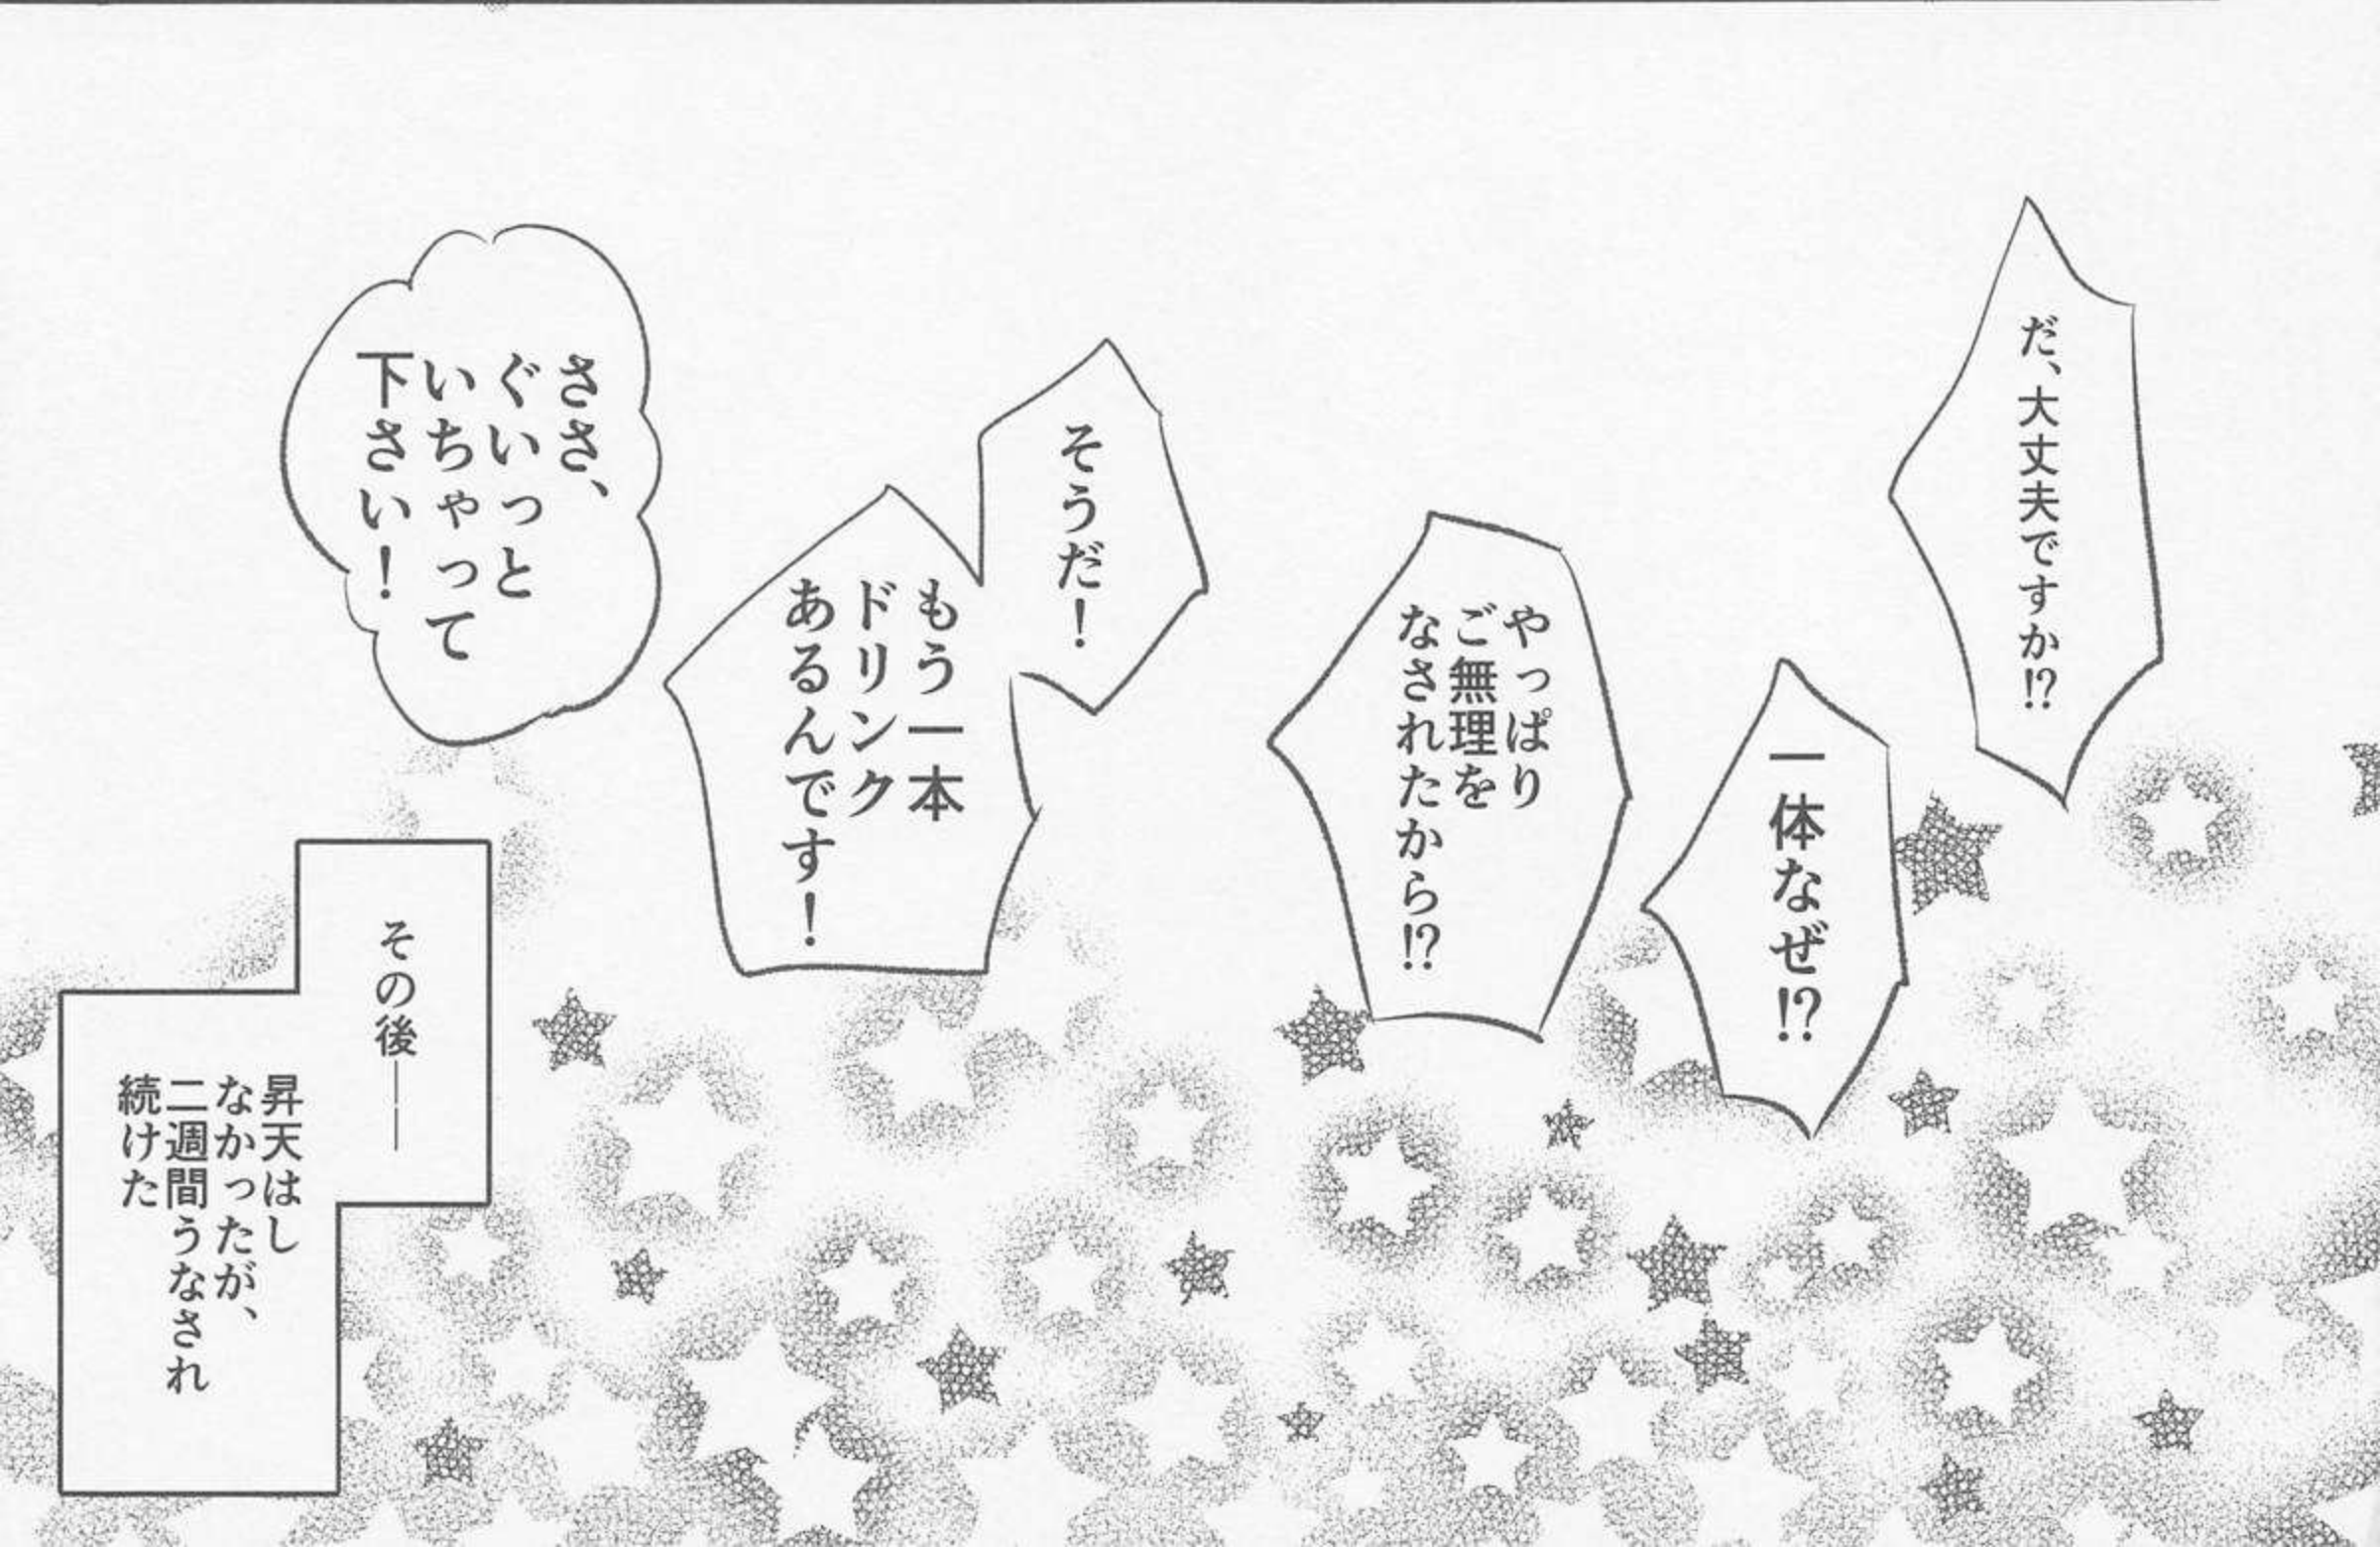 だ、大丈夫ですか!?
一体なぜ!?
やっぱり
ご無理を
なされたから!?
そうだ!
もう一本
ドリンク
あるんです!
ささ、
ぐいっと
いちゃって
下さい!
その後──
昇天はし
なかったが、
二週間うなされ
続けた